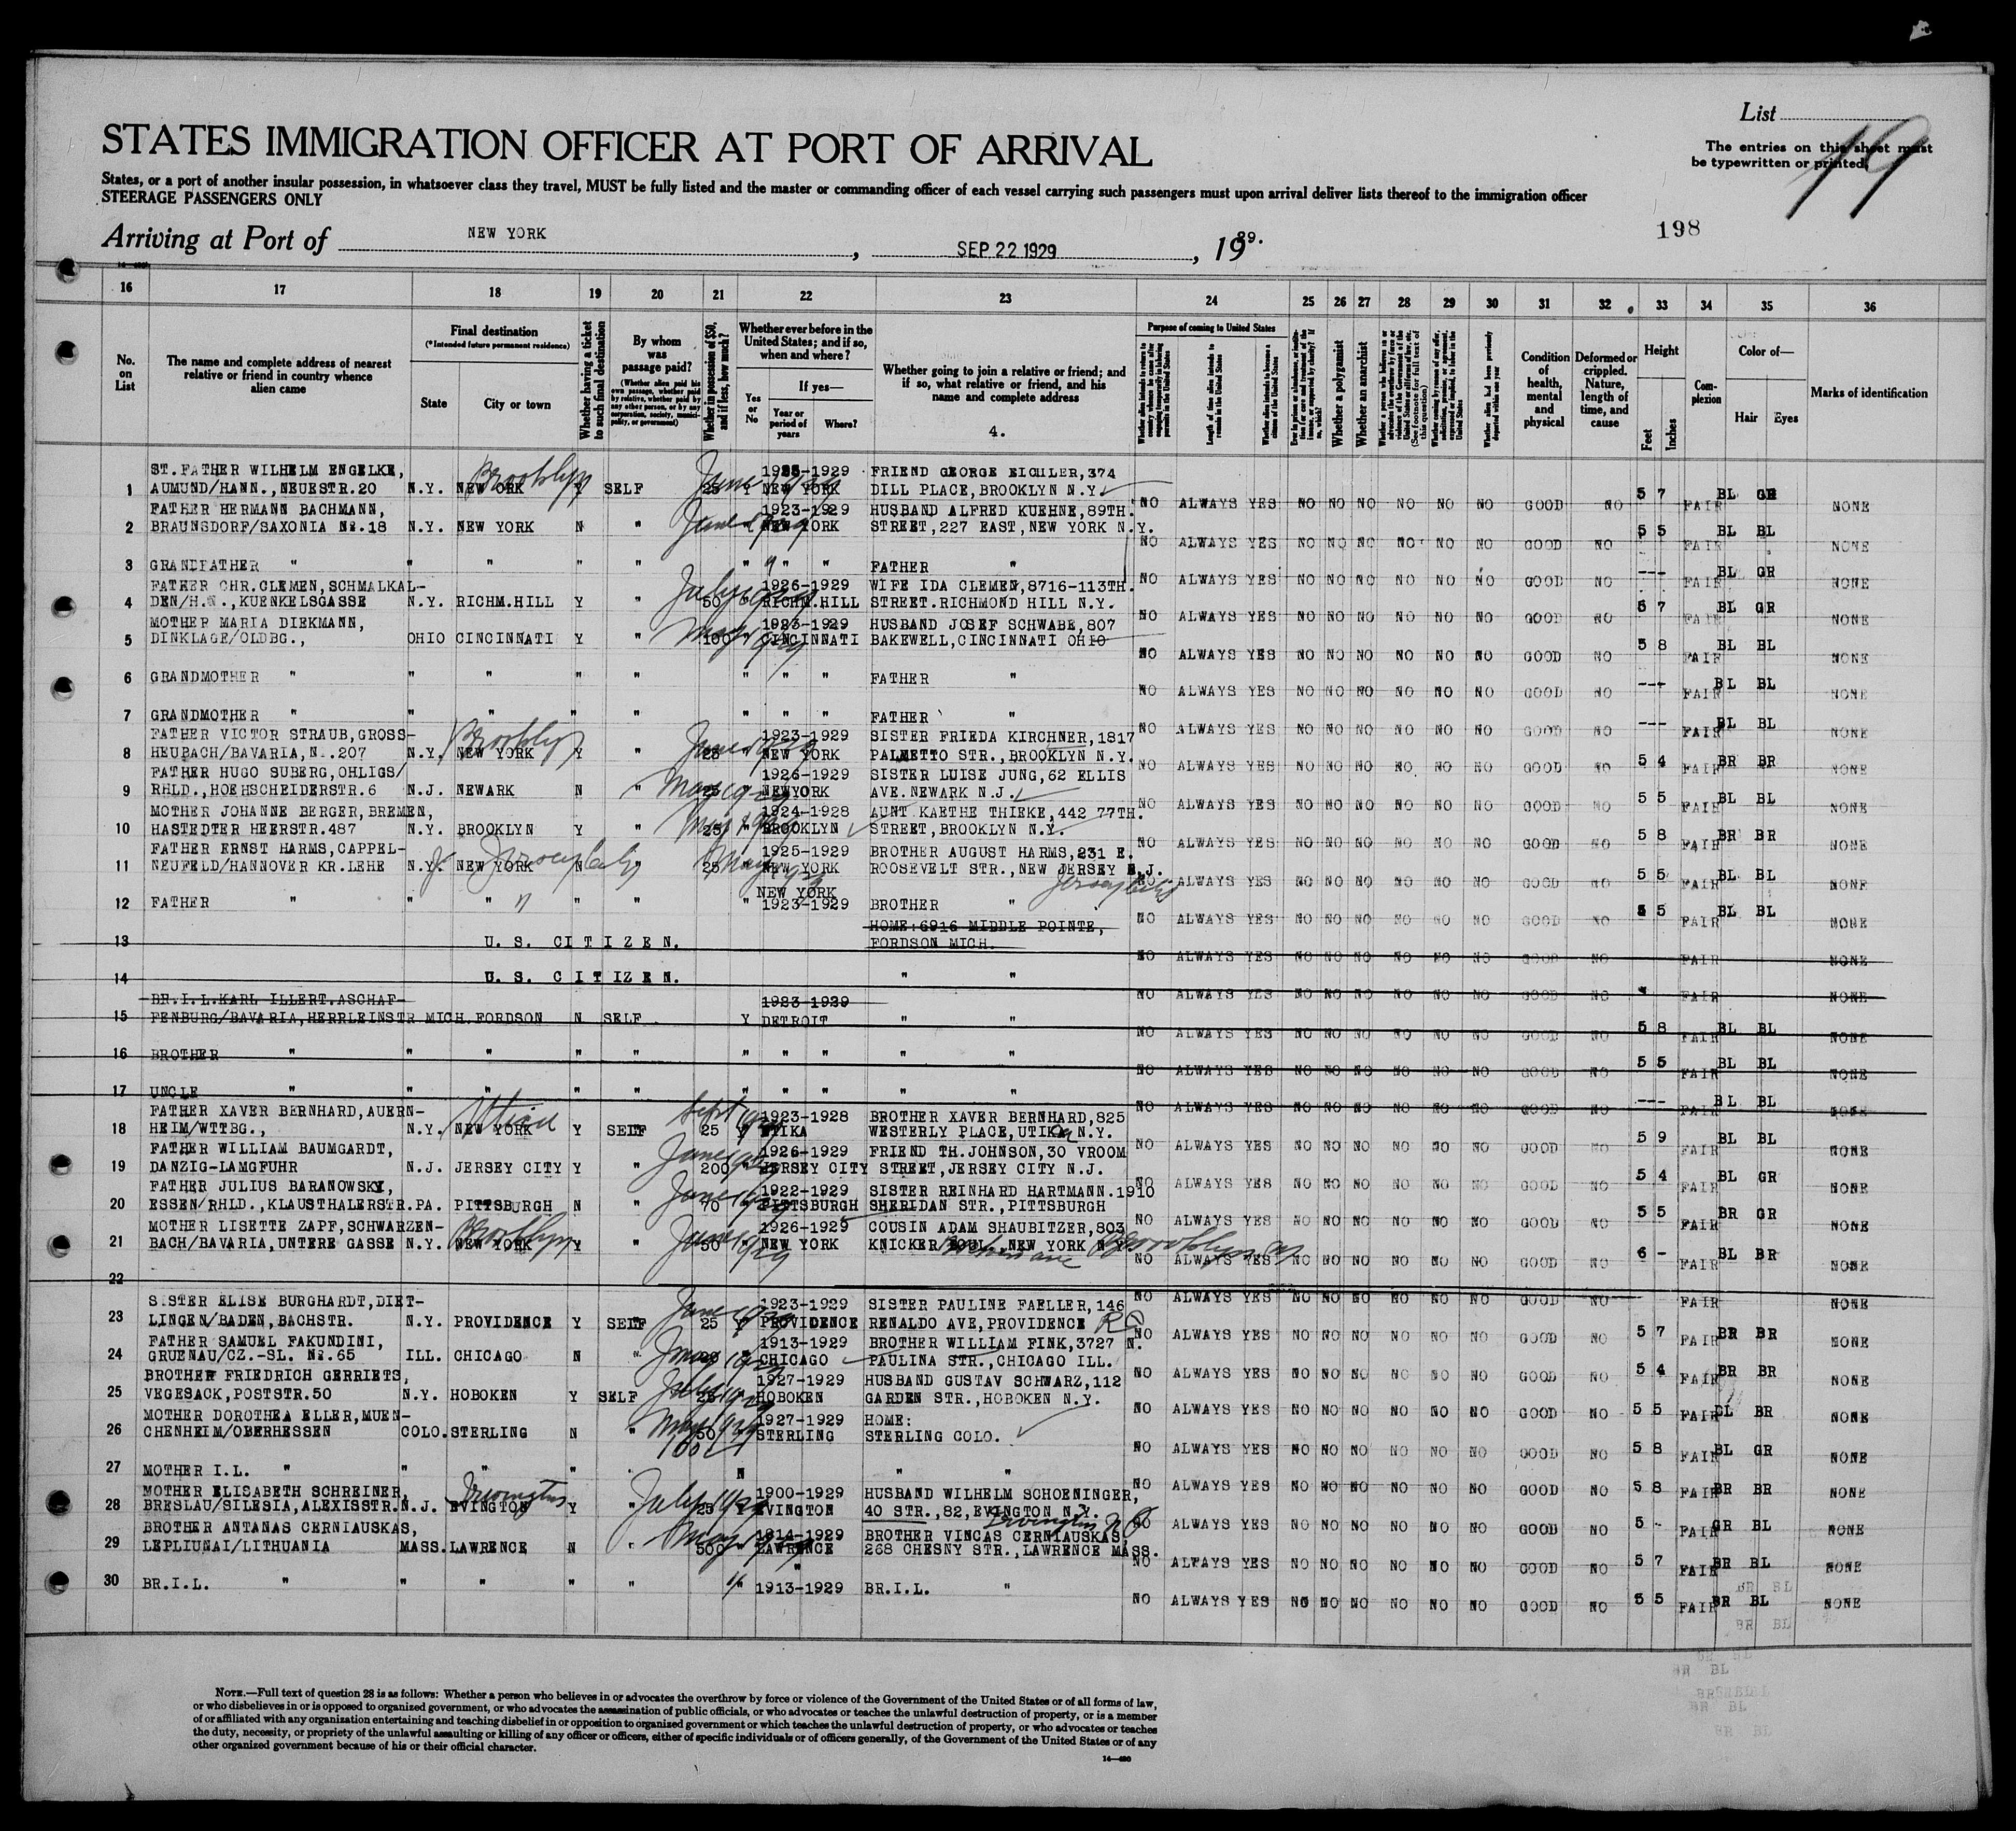 List
19
The entries on this sheet must
be typewritten or printed.
STATES IMMIGRATION OFFICER AT PORT OF ARRIVAL
States, or a port of another insular possession, in whatsoever class they travel, MUST be fully listed and the master or commanding officer of each vessel carrying such passengers must upon arrival deliver lists thereof to the immigration officer
STEERAGE PASSENGERS ONLY
198
Arriving at Port of NEW YORK, SEP 22 1929, 1929.
16 17 18 19 20 21 22 23 24 25 26 27 28 29 30 31 32 33 34 35 36
No. on List
The name and complete address of nearest relative or friend in country whence alien came
Final destination
(*Intended future permanent residence)
State
City or town
Whether having a ticket to such final destination
By whom was passage paid?
(Whether alien paid his own passage, whether paid by relative, whether paid by any other person, or by any corporation, society, municipality, or government)
Whether in possession of $50, and if less, how much?
Whether ever before in the United States; and if so, when and where?
Yes or No
If yes—
Year or period of years
Where?
Whether going to join a relative or friend; and if so, what relative or friend, and his name and complete address
4.
Purpose of coming to United States
Length of time alien intends to remain in the United States
Whether a polygamist
Whether an anarchist
(See footnote for full text of this question)
Condition of health, mental and physical
Deformed or crippled. Nature, length of time, and cause
Height
Feet
Inches
Complexion
Color of—
Hair
Eyes
Marks of identification
ST.FATHER WILHELM ENGELKE, Brooklyn 1925-1929 FRIEND GEORGE EICHLER,374
1 AUMUND/HANN.,NEUESTR.20 N.Y. NEW YORK Y SELF 25 Y NEW YORK DILL PLACE,BROOKLYN N.Y. NO ALWAYS YES NO NO NO NO NO NO GOOD NO 5 7 FAIR BL GR NONE
FATHER HERMANN BACHMANN, 1923-1929 HUSBAND ALFRED KUEHNE,89TH.
2 BRAUNSDORF/SAXONIA Nr.18 N.Y. NEW YORK N " NEW YORK STREET,227 EAST,NEW YORK N.Y. NO ALWAYS YES NO NO NO NO NO NO GOOD NO 5 5 FAIR BL BL NONE
3 GRANDFATHER " " " " " " " " FATHER " NO ALWAYS YES NO NO NO NO NO NO GOOD NO --- FAIR BL GR NONE
FATHER CHR.CLEMEN,SCHMALKAL- 1926-1929 WIFE IDA CLEMEN,8716-113TH.
4 DEN/H.N.,KUENKELSGASSE N.Y. RICHM.HILL Y " 50 " RICHM.HILL STREET.RICHMOND HILL N.Y. NO ALWAYS YES NO NO NO NO NO NO GOOD NO 5 7 FAIR BL GR NONE
MOTHER MARIA DIEKMANN, 1923-1929 HUSBAND JOSEF SCHWABE,807
5 DINKLAGE/OLDBG., OHIO CINCINNATI Y " 100 CINCINNATI BAKEWELL,CINCINNATI OHIO NO ALWAYS YES NO NO NO NO NO NO GOOD NO 5 8 FAIR BL BL NONE
6 GRANDMOTHER " " " " " " " " FATHER " NO ALWAYS YES NO NO NO NO NO NO GOOD NO --- FAIR BL BL NONE
7 GRANDMOTHER " " " " " " " " FATHER " NO ALWAYS YES NO NO NO NO NO NO GOOD NO --- FAIR BL BL NONE
FATHER VICTOR STRAUB,GROSS- Brooklyn 1923-1929 SISTER FRIEDA KIRCHNER,1817
8 HEUBACH/BAVARIA,N..207 N.Y. NEW YORK Y " 25 " NEW YORK PALMETTO STR.,BROOKLYN N.Y. NO ALWAYS YES NO NO NO NO NO NO GOOD NO 5 4 FAIR BR BR NONE
FATHER HUGO SUBERG,OHLIGS/ 1926-1929 SISTER LUISE JUNG,62 ELLIS
9 RHLD.,HOEHSCHEIDERSTR.6 N.J. NEWARK N " " NEWYORK AVE.NEWARK N.J. NO ALWAYS YES NO NO NO NO NO NO GOOD NO 5 5 FAIR BL BL NONE
MOTHER JOHANNE BERGER,BREMEN, 1924-1928 AUNT KAETHE THIEKE,442 77TH.
10 HASTEDTER HEERSTR.487 N.Y. BROOKLYN Y " 25 " BROOKLYN STREET,BROOKLYN N.Y. NO ALWAYS YES NO NO NO NO NO NO GOOD NO 5 8 FAIR BR BR NONE
FATHER ERNST HARMS,CAPPEL- Jersey City 1925-1929 BROTHER AUGUST HARMS,231 E.
11 NEUFELD/HANNOVER KR.LEHE N.Y. NEW YORK N " 25 " NEW YORK ROOSEVELT STR.,NEW JERSEY N.J. Jersey City NO ALWAYS YES NO NO NO NO NO NO GOOD NO 5 5 FAIR BL BL NONE
NEW YORK
12 FATHER " " " " " " 1923-1929 BROTHER " NO ALWAYS YES NO NO NO NO NO NO GOOD NO 5 5 FAIR BL BL NONE
HOME:6916 MIDDLE POINTE,
13 U. S. CITIZEN. FORDSON MICH. NO ALWAYS YES NO NO NO NO NO NO GOOD NO FAIR NONE
14 U. S. CITIZEN. " " NO ALWAYS YES NO NO NO NO NO NO GOOD NO FAIR NONE
BR.I.L.KARL ILLERT.ASCHAF- 1923-1929
15 FENBURG/BAVARIA,HERRLEINSTR MICH.FORDSON N SELF Y DETROIT " " NO ALWAYS YES NO NO NO NO NO NO GOOD NO 5 8 FAIR BL BL NONE
16 BROTHER " " " " " " " " " " NO ALWAYS YES NO NO NO NO NO NO GOOD NO 5 5 FAIR BL BL NONE
17 UNCLE " " " " " " " " " " NO ALWAYS YES NO NO NO NO NO NO GOOD NO --- FAIR BL BL NONE
FATHER XAVER BERNHARD,AUERN- Utica Sept 1923-1928 BROTHER XAVER BERNHARD,825
18 HEIM/WTTBG., N.Y. NEW YORK Y SELF 25 Y UTIKA WESTERLY PLACE,UTIKA N.Y. NO ALWAYS YES NO NO NO NO NO NO GOOD NO 5 9 FAIR BL BL NONE
FATHER WILLIAM BAUMGARDT, June 1929 1926-1929 FRIEND TH.JOHNSON,30 VROOM
19 DANZIG-LAMGFUHR N.J. JERSEY CITY Y " 200 " JERSEY CITY STREET,JERSEY CITY N.J. NO ALWAYS YES NO NO NO NO NO NO GOOD NO 5 4 FAIR BL GR NONE
FATHER JULIUS BARANOWSKY, June 1929 1922-1929 SISTER REINHARD HARTMANN.1910
20 ESSEN/RHLD.,KLAUSTHALERSTR.PA. PITTSBURGH N " 70 " PITTSBURGH SHERIDAN STR.,PITTSBURGH NO ALWAYS YES NO NO NO NO NO NO GOOD NO 5 5 FAIR BR GR NONE
MOTHER LISETTE ZAPF,SCHWARZEN- Brooklyn June 1929 1926-1929 COUSIN ADAM SHAUBITZER,803
21 BACH/BAVARIA,UNTERE GASSE N.Y. NEW YORK Y " 50 " NEW YORK KNICKER NEW YORK N.Y. Brooklyn NY NO ALWAYS YES NO NO NO NO NO NO GOOD NO 6 - FAIR BL BR NONE
22 NO ALWAYS YES NO NO NO NO NO NO GOOD NO FAIR NONE
SISTER ELISE BURGHARDT,DIET- June 1929 1923-1929 SISTER PAULINE FAELLER,146
23 LINGEN/BADEN,BACHSTR. N.Y. PROVIDENCE Y SELF 25 Y PROVIDENCE RENALDO AVE,PROVIDENCE RI NO ALWAYS YES NO NO NO NO NO NO GOOD NO 5 7 FAIR BR BR NONE
FATHER SAMUEL FAKUNDINI, May 1929 1913-1929 BROTHER WILLIAM FINK,3727 N.
24 GRUENAU/CZ.-SL. Nr.65 ILL. CHICAGO N " " CHICAGO PAULINA STR.,CHICAGO ILL. NO ALWAYS YES NO NO NO NO NO NO GOOD NO 5 4 FAIR BR BR NONE
BROTHER FRIEDRICH GERRIETS, July 1929 1927-1929 HUSBAND GUSTAV SCHWARZ,112
25 VEGESACK,POSTSTR.50 N.Y. HOBOKEN Y SELF 25 HOBOKEN GARDEN STR.,HOBOKEN N.Y. NO ALWAYS YES NO NO NO NO NO NO GOOD NO 5 5 FAIR BL BR NONE
MOTHER DOROTHEA ELLER,MUEN- May 1929 1927-1929 HOME:
26 CHENHEIM/OBERHESSEN COLO. STERLING N " 50 STERLING STERLING COLO. NO ALWAYS YES NO NO NO NO NO NO GOOD NO 5 8 FAIR BL GR NONE
100
27 MOTHER I.L. " " " " " N " " NO ALWAYS YES NO NO NO NO NO NO GOOD NO 5 8 FAIR BR BR NONE
MOTHER ELISABETH SCHREINER, Irvington July 1929 1900-1929 HUSBAND WILHELM SCHOENINGER,
28 BRESLAU/SILESIA,ALEXISSTR.N.J. EVINGTON Y " 25 Y EVINGTON 40 STR.,82,EVINGTON N.Y. Irvington NJ NO ALWAYS YES NO NO NO NO NO NO GOOD NO 5 - FAIR GR BL NONE
BROTHER ANTANAS CERNIAUSKAS, May 1929 1914-1929 BROTHER VINCAS CERNIAUSKAS,
29 LEPLIUNAI/LITHUANIA MASS. LAWRENCE N " 500 LAWRENCE 268 CHESNY STR.,LAWRENCE MASS. NO ALWAYS YES NO NO NO NO NO NO GOOD NO 5 7 FAIR BR BL NONE
30 BR.I.L. " " " " " " 1913-1929 BR.I.L. " NO ALWAYS YES NO NO NO NO NO NO GOOD NO 5 5 FAIR BR BL NONE
NOTE.—Full text of question 28 is as follows: Whether a person who believes in or advocates the overthrow by force or violence of the Government of the United States or of all forms of law,
or who disbelieves in or is opposed to organized government, or who advocates the assassination of public officials, or who advocates or teaches the unlawful destruction of property, or is a member
of or affiliated with any organization entertaining and teaching disbelief in or opposition to organized government or which teaches the unlawful destruction of property, or who advocates or teaches
the duty, necessity, or propriety of the unlawful assaulting or killing of any officer or officers, either of specific individuals or of officers generally, of the Government of the United States or of any
other organized government because of his or their official character.
14—490